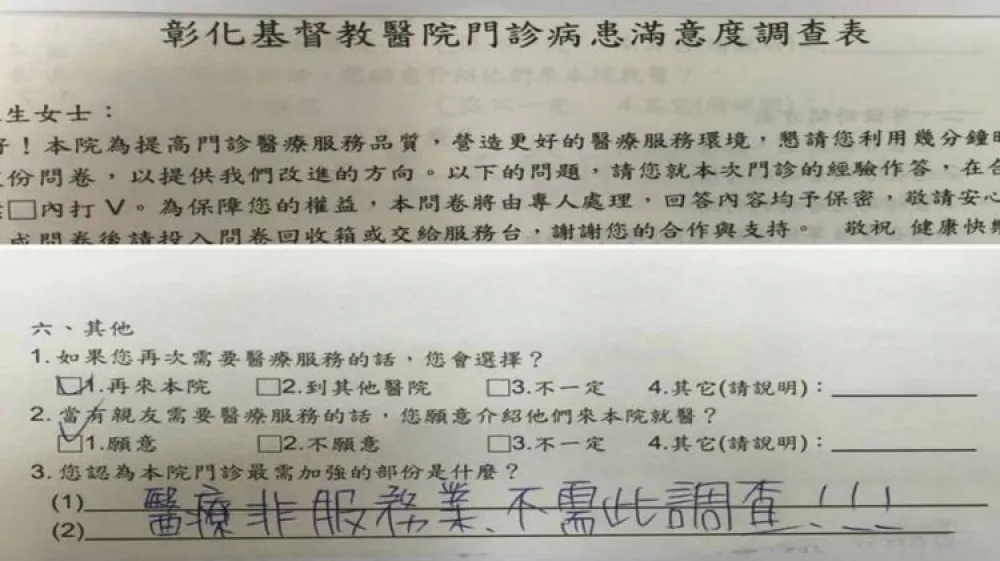 彰化基督教醫院門診病患滿意度調查表
生女士：
好！本院為提高門診醫療服務品質，營造更好的醫療服務環境，懇請您利用幾分鐘
份問卷，以提供我們改進的方向。以下的問題，請您就本次門診的經驗作答，在合
□內打 V。為保障您的權益，本問卷將由專人處理，回答內容均予保密，敬請安心
成問卷後請投入問卷回收箱或交給服務台，謝謝您的合作與支持。 敬祝 健康快樂
六、其他
1. 如果您再次需要醫療服務的話，您會選擇？
☑1.再來本院 □2.到其他醫院 □3.不一定 4.其它(請說明)：
2. 當有親友需要醫療服務的話，您願意介紹他們來本院就醫？
☑1.願意 □2.不願意 □3.不一定 4.其它(請說明)：
3. 您認為本院門診最需加強的部份是什麼？
(1) 醫療非服務業、不需此調查！！！
(2)